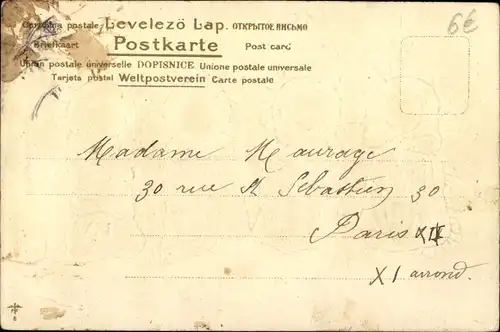 Cartolina postale Levelező Lap. ОТКРЫТОЕ ПИСЬМО
Briefkaart Postkarte Post card
Union postale universelle DOPISNICE Unione postale universale
Tarjeta postal Weltpostverein Carte postale
6€
Madame Maurage
30 rue St Sebastien 30
Paris XI
XI arrond.
8